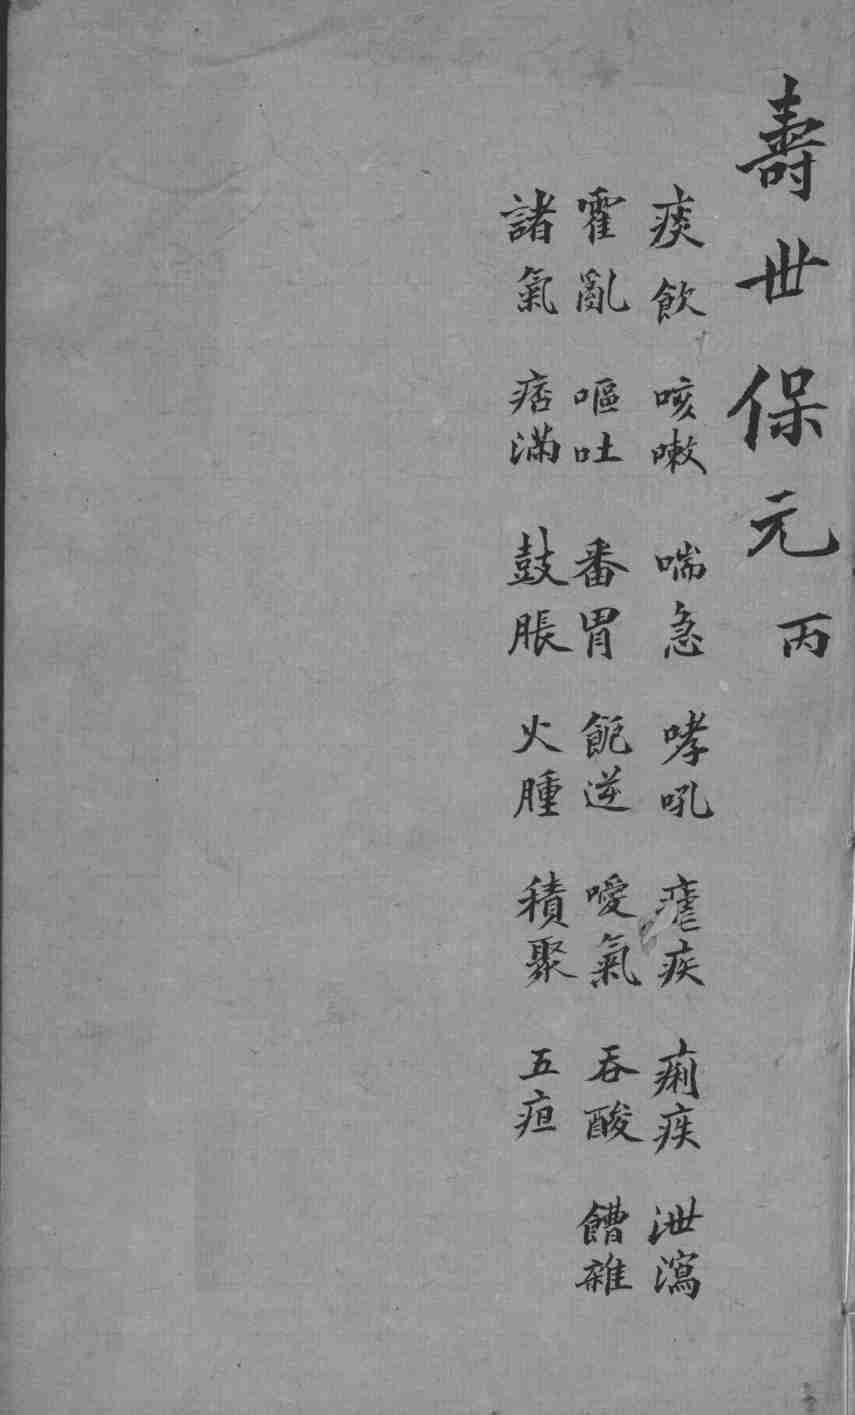 壽世保元 丙
痰飲 咳嗽 喘急 哮吼 瘧疾 痢疾 泄瀉
霍亂 嘔吐 番胃 飽逆 噯氣 吞酸 饍雜
諸氣 痞滿 鼓脹 火腫 積聚 五疸